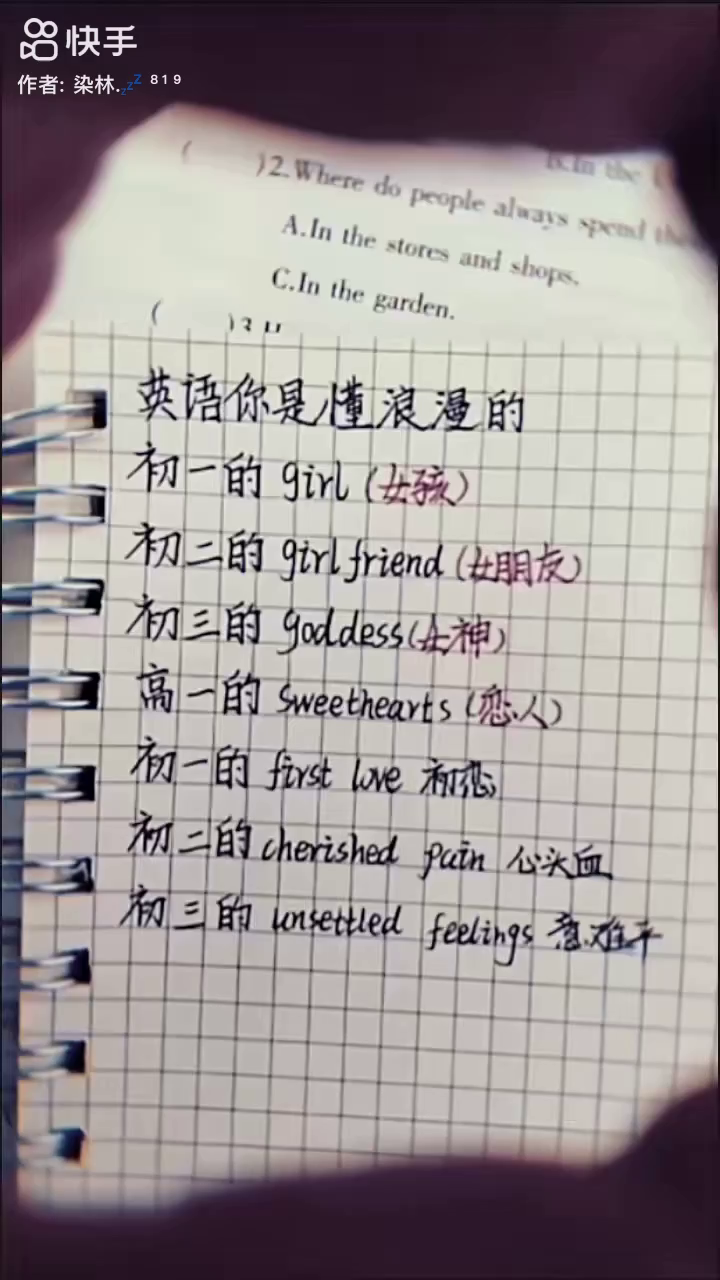 快手
作者: 染林.💤 819
B.In the
( )2.Where do people always spend the
A.In the stores and shops.
C.In the garden.
( )3.
英语你是懂浪漫的
初一的 girl (女孩)
初二的 girlfriend (女朋友)
初三的 goddess(女神)
高一的 sweethearts (恋人)
初一的 first love 初恋
初二的 cherished pain 心头血
初三的 unsettled feelings 意难平